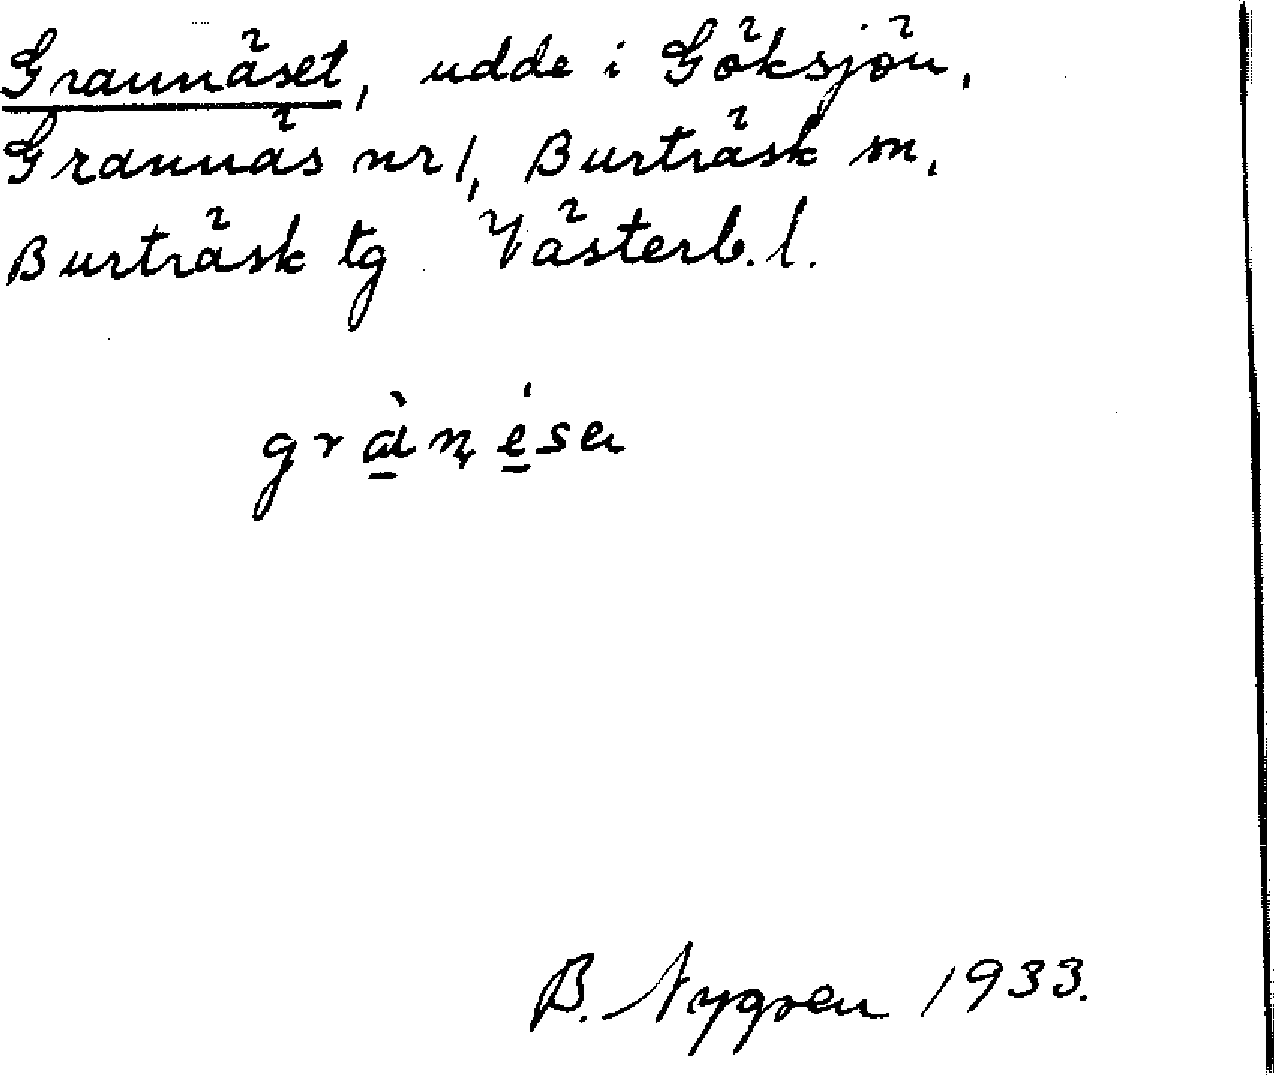 Grannäset, udde i Göksjön,
Grannäs nr 1, Burträsk sn,
Burträsk tg Västerb. l.
grànésa
B. Nygren 1933.